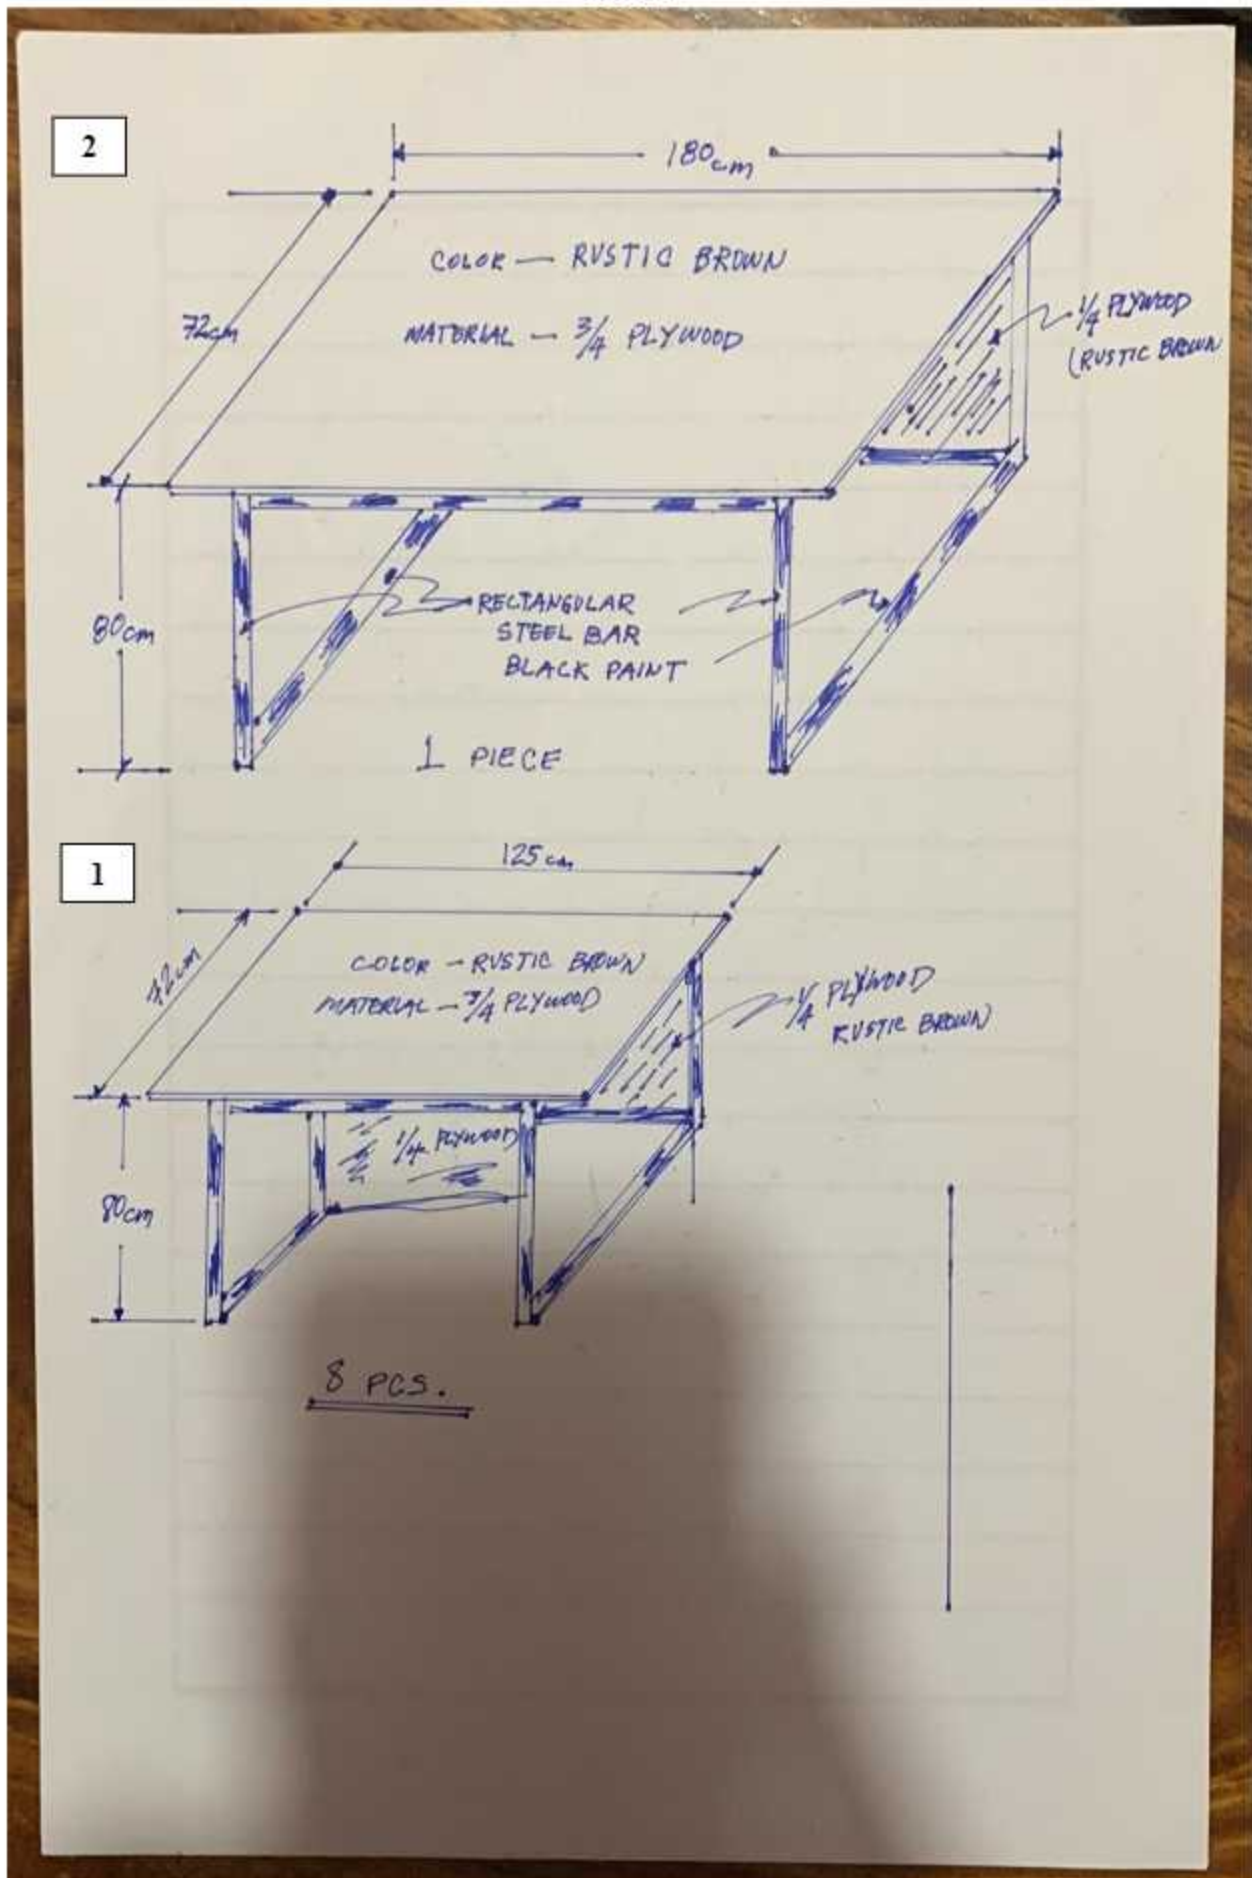 2
180cm
COLOR — RUSTIC BROWN
72cm
MATERIAL — 3/4 PLYWOOD
1/4 PLYWOOD
(RUSTIC BROWN
RECTANGULAR
STEEL BAR
BLACK PAINT
80cm
1 PIECE
1
125cm
72cm
COLOR — RUSTIC BROWN
MATERIAL — 3/4 PLYWOOD
1/4 PLYWOOD
RUSTIC BROWN)
1/4 PLYWOOD
80cm
8 PCS.